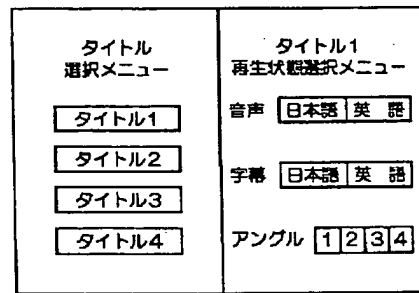 タイトル
選択メニュー
タイトル1
タイトル2
タイトル3
タイトル4
タイトル1
再生状態選択メニュー
音声 日本語 英 語
字幕 日本語 英 語
アングル 1 2 3 4